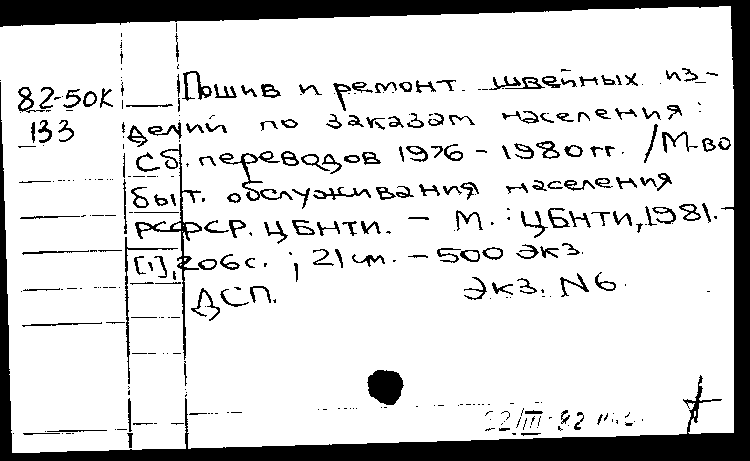 82-50К
133
Пошив и ремонт швейных из-
делий по заказам населения:
Сб. переводов 1976-1980гг. /М-во
быт. обслуживания населения
РСФСР. ЦБНТИ. - М.: ЦБНТИ, 1981.-
[1], 206с.; 21 см. - 500 экз.
ДСП. Экз. N6.
22/III-82